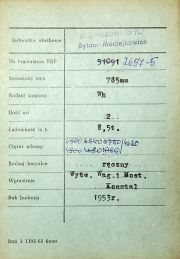 Jednostka służbowa
Bytom-Maciejkowice
Nr inwentarza PKP 51091 2657-S
Szerokość toru 785mm
Rodzaj wagonu Wh
Ilość osi 2
Ładowność w t. 8,5t.
Ciężar własny
Rodzaj hamulca ręczny
Wytw. Wag. i Most.
Wytwórnia Konstal
Rok budowy 1953r.